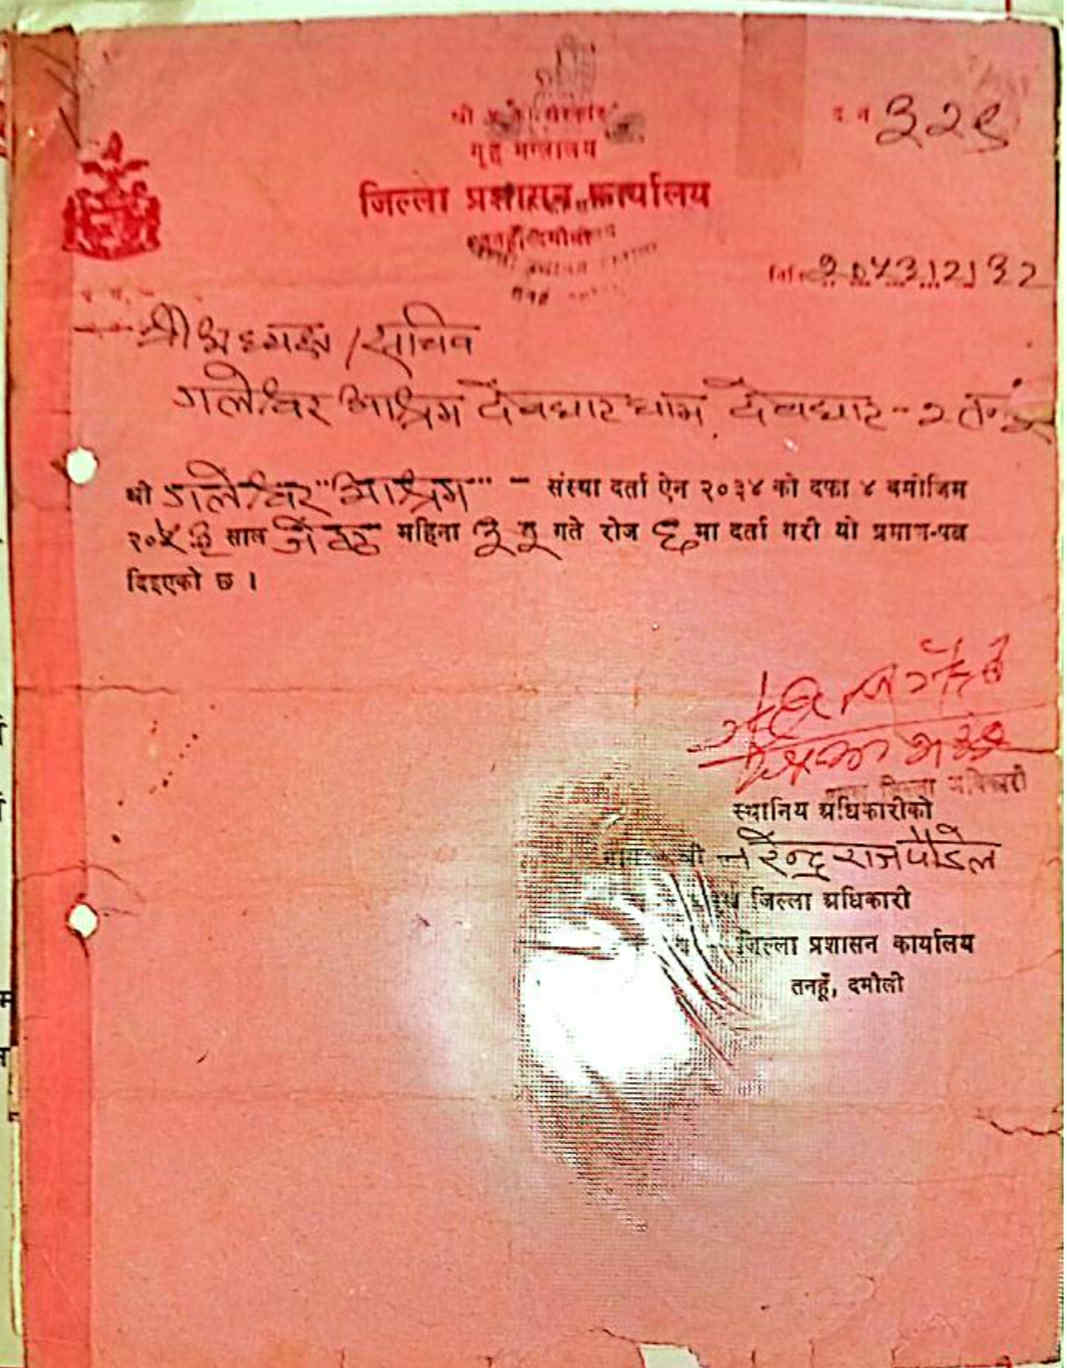 श्री ५ को सरकार
गृह मन्त्रालय
द. नं. ३२९
जिल्ला प्रशासन कार्यालय
तनहुँ, दमौली
मिति २०४३।२।३२
श्री अध्यक्ष / सचिव
गलेश्वर आश्रम देवघाट धाम, देवघाट - २
श्री गलेश्वर "आश्रम" - संस्था दर्ता ऐन २०३४ को दफा ४ बमोजिम
२०४३ साल जेठ महिना ३२ गते रोज ६ मा दर्ता गरी यो प्रमाण-पत्र
दिइएको छ ।
स्थानिय अधिकारीको
श्री नरेन्द्र राज पौडेल
जिल्ला अधिकारी
जिल्ला प्रशासन कार्यालय
तनहूँ, दमौली